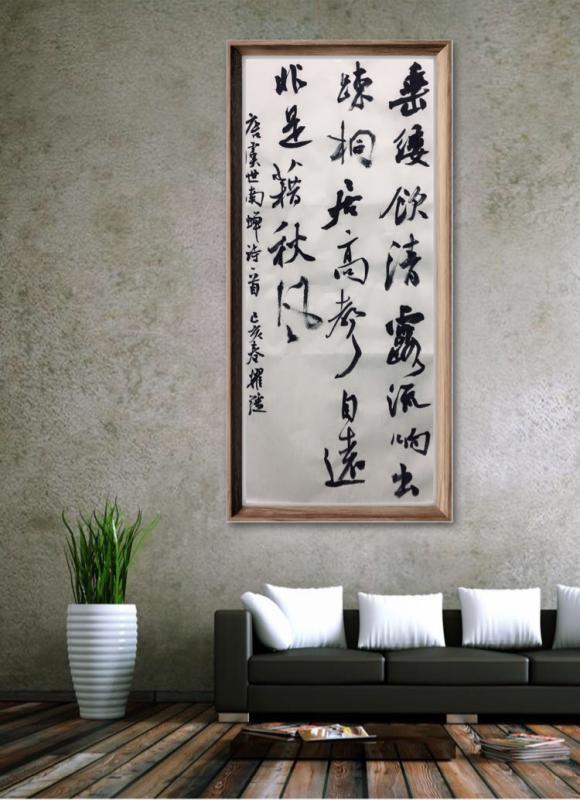 垂緌饮清露流响出
疎桐居高聲自遠
非是藉秋风
唐虞世南蝉诗一首 己亥春耀